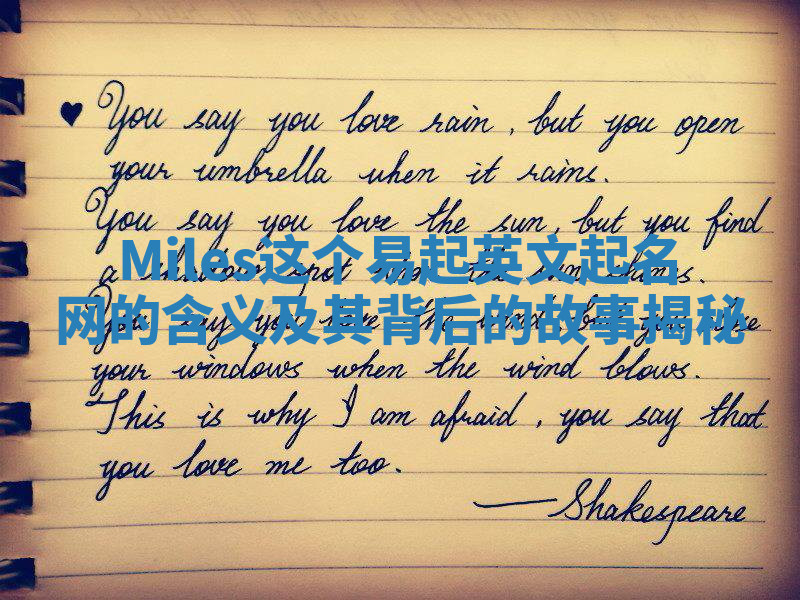 ♥ You say you love rain, but you open
your umbrella when it rains.
You say you love the sun, but you find
a shadow spot when the sun shines.
Miles这个易起英文起名
网的含义及其背后的故事揭秘
You say you love the wind, but you close
your windows when the wind blows.
This is why I am afraid, you say that
you love me too.
—Shakespeare